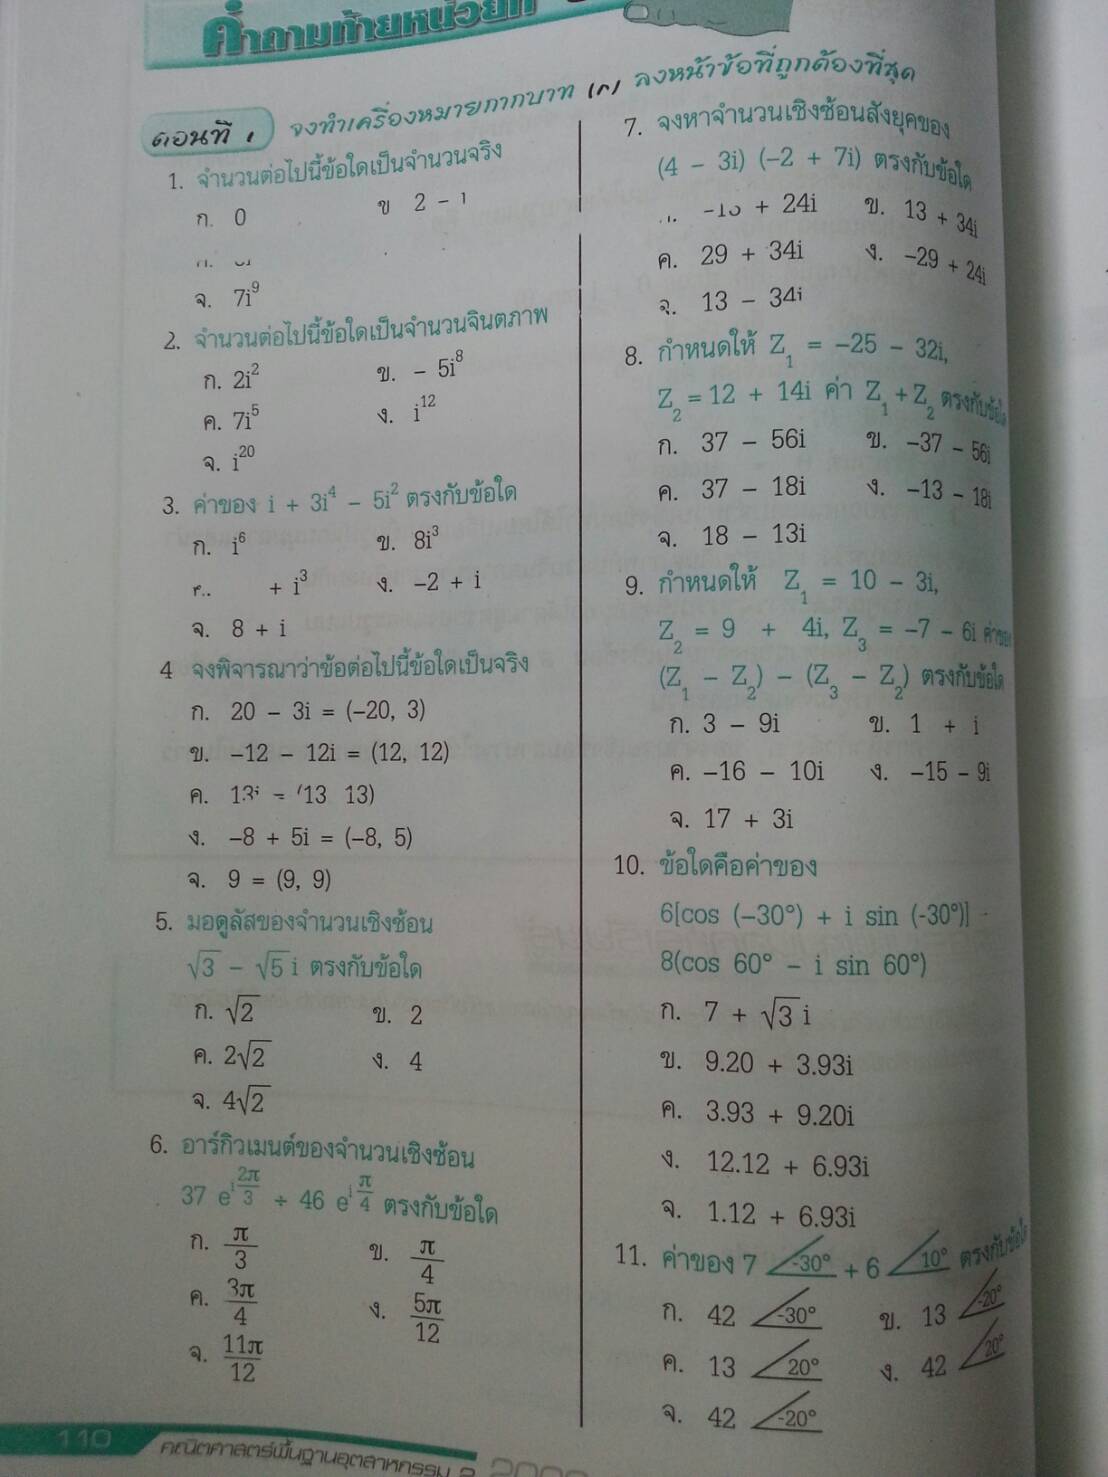 คำถามท้ายหน่วยที่
ตอนที่ 1 จงทำเครื่องหมายกากบาท (×) ลงหน้าข้อที่ถูกต้องที่สุด
1. จำนวนต่อไปนี้ข้อใดเป็นจำนวนจริง
ก. 0 ข 2 -
จ. 7i⁹
2. จำนวนต่อไปนี้ข้อใดเป็นจำนวนจินตภาพ
ก. 2i² ข. - 5i⁸
ค. 7i⁵ ง. i¹²
จ. i²⁰
3. ค่าของ i + 3i⁴ - 5i² ตรงกับข้อใด
ก. i⁶ ข. 8i³
+ i³ ง. -2 + i
จ. 8 + i
4 จงพิจารณาว่าข้อต่อไปนี้ข้อใดเป็นจริง
ก. 20 - 3i = (-20, 3)
ข. -12 - 12i = (12, 12)
ค. 13i = (13 13)
ง. -8 + 5i = (-8, 5)
จ. 9 = (9, 9)
5. มอดูลัสของจำนวนเชิงซ้อน
√3 - √5 i ตรงกับข้อใด
ก. √2 ข. 2
ค. 2√2 ง. 4
จ. 4√2
6. อาร์กิวเมนต์ของจำนวนเชิงซ้อน
37 e^(i 2π/3) ÷ 46 e^(i π/4) ตรงกับข้อใด
ก. π/3 ข. π/4
ค. 3π/4 ง. 5π/12
จ. 11π/12
7. จงหาจำนวนเชิงซ้อนสังยุคของ
(4 - 3i) (-2 + 7i) ตรงกับข้อใด
+ 24i ข. 13 + 34i
ค. 29 + 34i ง. -29 + 24i
จ. 13 - 34i
8. กำหนดให้ Z₁ = -25 - 32i,
Z₂ = 12 + 14i ค่า Z₁ + Z₂ ตรงกับข้อใด
ก. 37 - 56i ข. -37 - 56i
ค. 37 - 18i ง. -13 - 18i
จ. 18 - 13i
9. กำหนดให้ Z₁ = 10 - 3i,
Z₂ = 9 + 4i, Z₃ = -7 - 6i ค่าของ
(Z₁ - Z₂) - (Z₃ - Z₂) ตรงกับข้อใด
ก. 3 - 9i ข. 1 + i
ค. -16 - 10i ง. -15 - 9i
จ. 17 + 3i
10. ข้อใดคือค่าของ
6[cos (-30°) + i sin (-30°)] -
8(cos 60° - i sin 60°)
ก. 7 + √3 i
ข. 9.20 + 3.93i
ค. 3.93 + 9.20i
ง. 12.12 + 6.93i
จ. 1.12 + 6.93i
11. ค่าของ 7 ∠-30° + 6 ∠10° ตรงกับข้อใด
ก. 42 ∠-30° ข. 13 ∠-20°
ค. 13 ∠20° ง. 42 ∠20°
จ. 42 ∠-20°
110 คณิตศาสตร์พื้นฐานอุตสาหกรรม 2